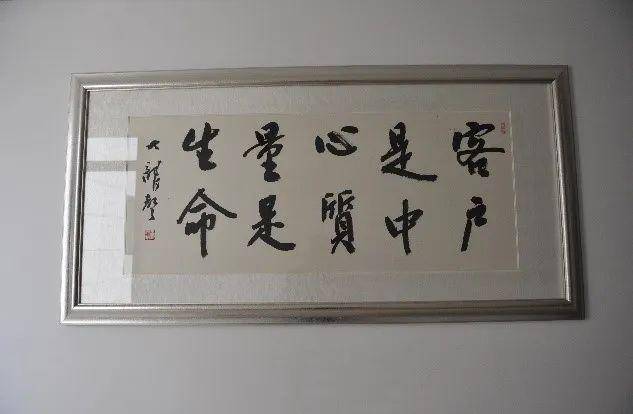 客户
是中
心質
量是
生命
大龍